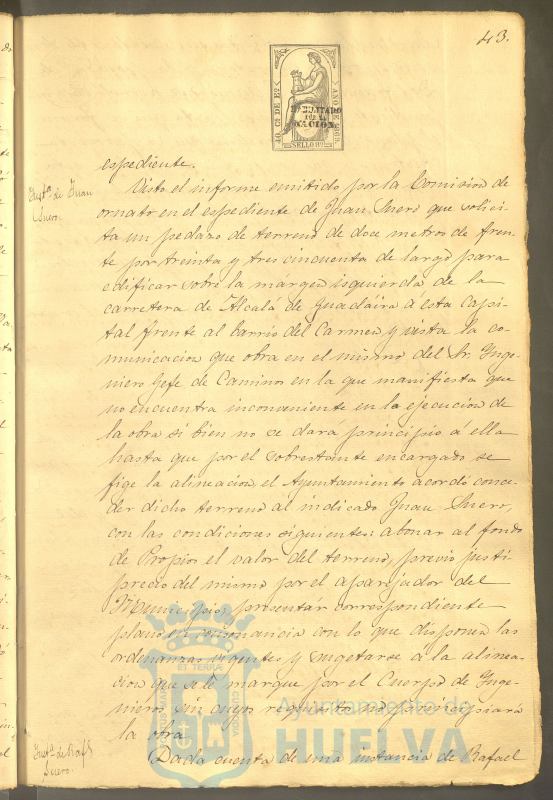 43.
40. Cs DE Eº
AÑO DE 1869.
HABILITADO
POR LA
NACION.
SELLO 9º
espediente.
Instª de Juan
Suero.
Visto el informe emitido por la Comision de
ornato en el espediente de Juan Suero que solici-
ta un pedazo de terreno de doce metros de fren-
te por treinta y tres cincuenta de largo para
edificar sobre la márgen izquierda de la
carretera de Alcalá de Guadaira a esta Capi-
tal frente al barrio del Carmen y vista la co-
municacion que obra en el mismo del Sr. Inge-
niero Gefe de Caminos en la que manifiesta que
no encuentra inconveniente en la ejecucion de
la obra si bien no se dará principio á ella
hasta que por el sobrestante encargado se
fige la alineacion, el Ayuntamiento acordó conce-
der dicho terreno al indicado Juan Suero,
con las condiciones siguientes: abonar al fondo
de Propios el valor del terreno, previo justi-
precio del mismo por el aparejador del
Municipio, presentar correspondiente
plano en consonancia con lo que disponen las
ordenanzas vigentes y sugetarse a la alinea-
cion que se le marque por el Cuerpo de Inge-
nieros sin cuyo requisito no principiará
la obra.
Instª de Rafl
Suero.
Dada cuenta de una instancia de Rafael
Ayuntamiento de
HUELVA